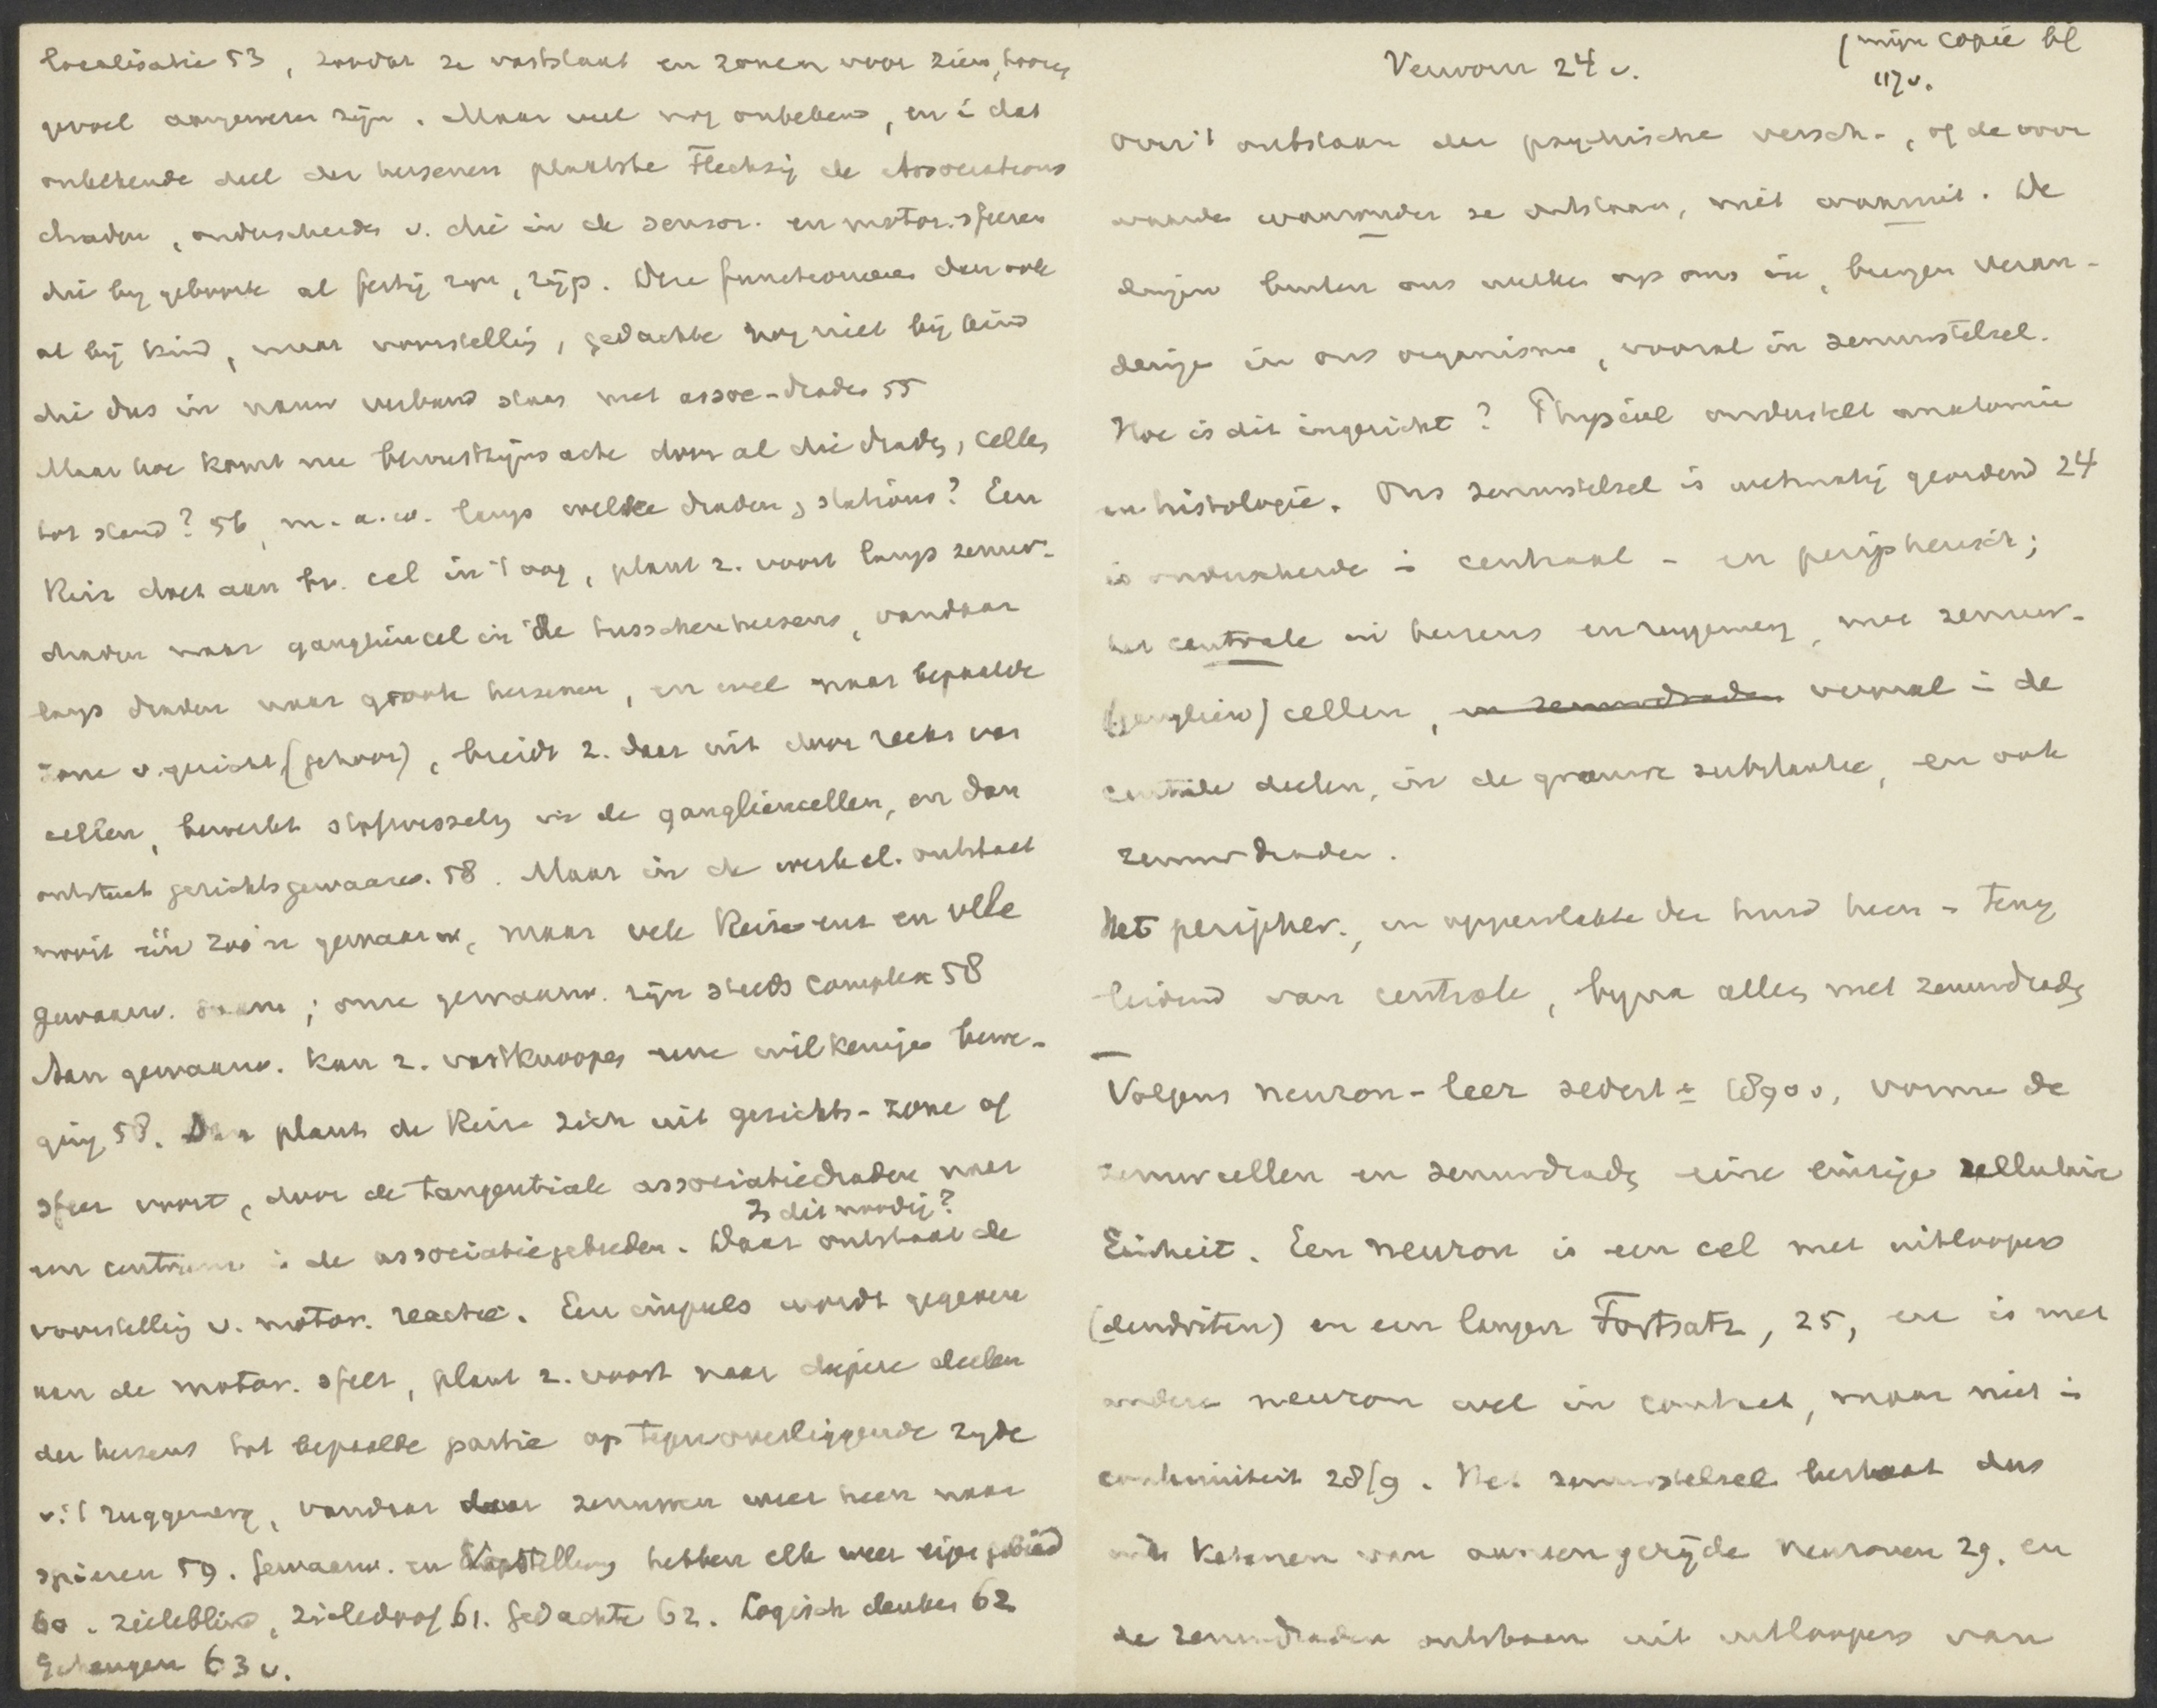 localisatie 53, zonder ze vaststaat en zonen voor zien, hooren,
gevoel aangewezen zijn. Maar veel nog onbekend, en i dat
onbekende deel der hersenen plaatste Flechsig de Associations
draden, onderscheiden v. die in de sensor. en motor. sfeeren
die bij geboorte al fertig zijn, rijp. Deze functioneeren dan ook
al bij kind, maar voorstelling, gedachte nog niet bij kind
die dus in nauw verband staan met assoc-draden 55
Maar hoe komt nu bewustzijnsacte door al die draden, cellen
tot stand? 56, m.a.w. langs welke draden, stations? Een
Reiz doet aan bv. cel in 't oog, plant z. voort langs zenuw-
draden naar gangliëncel in de tusschenhersens, vandaar
langs draden naar groote hersenen, en wel naar bepaalde
zone v. gezicht (gehoor), breidt z. daar uit door reeks van
cellen, bewerkt stofwisseling in de gangliencellen, en dan
ontstaat gezichtsgewaarw. 58. Maar in de werkel. ontstaat
nooit één zoo'n gewaarw., maar vele Reize uit en vele
gewaarw. ; onze gewaarw. zijn steeds complex 58
Aan gewaarw. kan z. vastknoopen eene willkeurige bewe-
ging 58. Dan plant de Reiz zich uit gezichts-zone of
sfeer voort, door de tangentiale associatiedraden naar
Is dit noodig?
een centrum i de associatiegebieden. Daar ontstaat de
voorstelling v. motor. reactie. Een impuls wordt gegeven
aan de motor. sfeer, plant z. voort naar diepere deelen
der hersens tot bepaalde partie op tegenoverliggende zijde
v. 't ruggemerg, vandaar door zenuwen weer heen naar
spieren 59. Gewaarw. en Vorstellung hebben elk weer eigen gebied
60. zieleblind, zieledoof 61. Gedachte 62. Logisch denken 62
Geheugen 63 v.
Verworn 24 v.
(mijn copie bl
117 v.
over 't ontstaan der psychische versch-, of de voor
waarden waaronder ze ontstaan, niet waaruit. De
dingen buiten ons werken op ons in, brengen veran-
deringen in ons organisme, vooral in zenuwstelsel.
Hoe is dit ingericht? Physiol onderstelt anatomie
en histologie. Ons zenuwstelsel is wetmatig geordend 24
is onderscheiden i centraal - en peripherisch;
het centrale in hersens en ruggemerg, met zenuw-
(ganglien) cellen, en zenuwdraden vooral i de
centrale deelen, in de grauwe substantie, en ook
zenuwdraden.
Het peripher., en oppervlakte der huid heen - terug
leidend van centrale, bijna alles met zenuwdraden
Volgens neuron-leer sedert ± 1890 v, vormen de
zenuwcellen en zenuwdraden eine einzige zellulaire
Einheit. Een neuron is een cel met uitloopers
(dendriten) en een langen Fortsatz, 25, en is met
andere neuron wel in contact, maar niet i
continuiteit 28/9. Het zenuwstelsel bestaat dus
uit ketenen van aaneengerijde neuronen 29. en
de zenuwdraden ontstaan uit uitloopers van